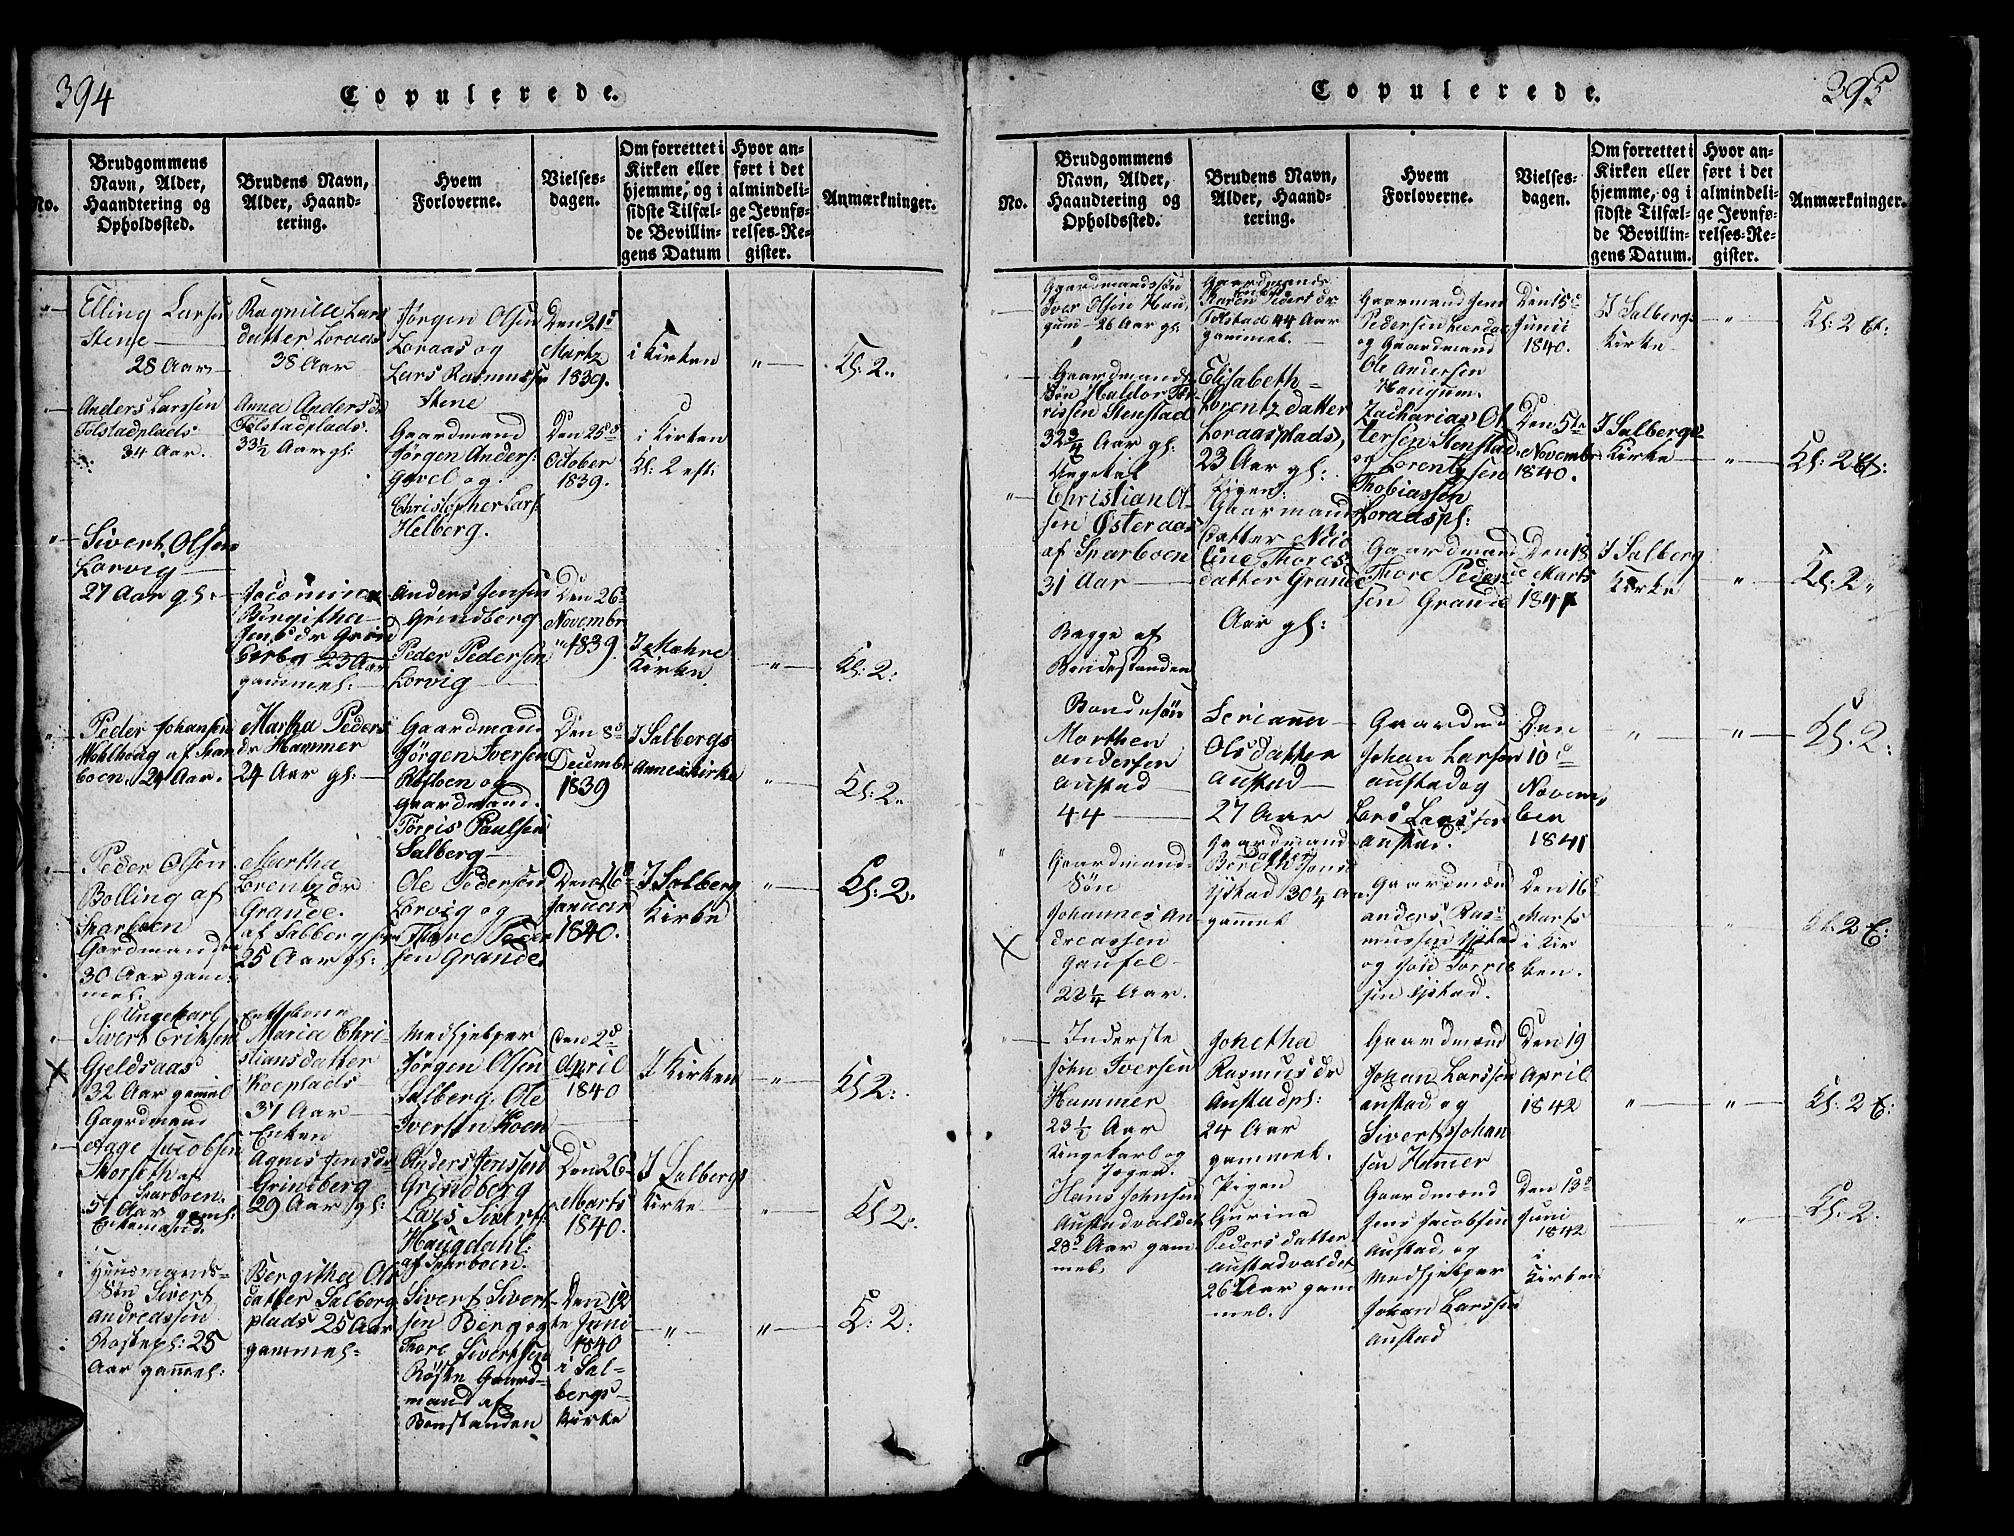 394
Copulerede.
No.
Brudgommens
Navn, Alder,
Haandtering og
Opholdssted.
Brudens Navn,
Alder, Haand-
tering.
Hvem
Forloverne.
Vielses-
dagen.
Om forrettet i
Kirken eller
hjemme, og i
sidste Tilfæl-
de Bevillin-
gens Datum
Hvor an-
ført i det
almindeli-
ge Jevnfø-
relses-Re-
gister.
Anmærkninger.
Elling Larsen
Stene
28 Aar
Ragnille Lars
datter Loraas
38 Aar
Jørgen Olsen
Loraas og
Lars Rasmussen
Stene
Den 21d
Martz
1839.
i Kirken
"
Kl: 2.
Anders Larssen
Tolstadplads
34 Aar.
Anne Anders dr
Tolstadplads
33½ Aar gl:
Gaardmand
Jørgen Anders:
Gorel og
Christopher Lars
Helberg.
Den 25d
October
1839.
i Kirken
Kl: 2 eft:
Sivert Olsen
Lorvig
27 Aar gl:
Birgitha
Jens dr Grind
berg 23 Aar
gammel:
Anders Jensen
Grindberg
Peder Pedersen
Lorvig
Den 26d
Novembr
1839.
I Mæhre
Kirke.
"
Kl: 2.
Peder Johansen
af Skar
boen. 24 Aar.
Martha Peders
dr Hammer
24 Aar gl:
Gaardmand
Jørgen Iversen
og
Gaardmand.
Torris Paulsen
Salberg
Den 8d
Decembr
1839
I Salbergs
Annexkirke
"
Kl: 2.
Peder Olsen
Bolling af
Skarboen
Gardmand
30 Aar gam
mel.
Martha
Lorentz dr
Grande.
af Salberg
25 Aar gl:
Ole Pedersen
Lorvig og
Thore Peder
sen Grande
Den 16d
Januar
1840.
I Salberg
Kirke
"
Kl: 2.
Ungekarl
Sivert Eriksen
Gjeldsaas
32 Aar gamel
Maria Chri-
stiansdatter
Koeplads
37 Aar
Medhjelper
Jørgen Olsen
Salberg. Ole
Iversen Koen
Den 2d
April
1840
I Kirken
"
Kl 2.
Gaardmand
Aage Jacobsen
Skorseth af
Skarboen.
51 Aar gaml:
Enkemand.
Enken
Agnes Jens dr
Grindberg
29 Aar gl:
Anders Jenssen
Grindberg
Lars Sivert:
Haugdahl:
af Skarboen.
Den 26d
Marts
1840.
I Salbergs
Kirke
"
Kl 2.
Huusmands-
Søn Sivert
Andreassen
Rostepl: 25
Aar gammel:
Bergitha Ols
datter Salberg
plads 25 Aar
gammel
Sivert Sivert
sen Berg og
Thore Sivertsen
Røske Gaard-
mand af
Bonstanden
Den 12
te Juni
1840
i Sal-
bergs-
Kirke
"
"
K: 2.
395
Copulerede.
No.
Brudgommens
Navn, Alder,
Haandtering og
Opholdssted.
Brudens Navn,
Alder, Haand-
tering.
Hvem
Forloverne.
Vielses-
dagen.
Om forrettet i
Kirken eller
hjemme, og i
sidste Tilfæl-
de Bevillin-
gens Datum.
Hvor an-
ført i det
almindeli-
ge Jevnfø-
relses-Re-
gister.
Anmærkninger.
Gaardmandssøn
Iver Olsen Hau
gum 26 Aar gl.
Gaardmands
Enke
Karen Siverts dr
Tolstad 44 Aar
gammel.
Gaarmand Jens
Pedersen
og Gaardmand
Ole Andersen
Haugum.
Den 15d
Junii
1840.
I Salbergs
Kirke
"
Kl: 2 Et.
Gaardmands
Søn Haldor Tor
rissen Stenstad
32¾ Aar gl.
Elisabeth
Lorentz datter
Loraasplads,
23 Aar gl:
Zacharias Ol
Stenstad
og Lorentz
Thobiassen
Loraaspl:
Den 5te
Novembr
1840.
I Salbergs
Kirke
"
Kl: 2 Et:
Ungekal
Christian Ol
sen Østeraas
af Skarboen
31 Aar
Pigen:
Gaarmand
datter
Thores
datter Grande
Aar gl:
Gaardmand
Thore Peder
sen Grande
Den 18
Marts
1841
I Salberg
Kirke
"
Kl: 2
Begge af
Bondestanden
Bondesøn
Morthen
Andersen
Austad
44
Serianna
Olsdatter
Austad
27 Aar
Gaardmd
Johan Larsen
Austad og
Lars Larssen
Austad.
Den
10d
Novem
ber
1841
"
"
Kl. 2.
Gaardmand
Søn
Johannes An
dreassen
Gaufel
22¼ Aar.
Gaardmand
datter
Bereth Jons
Ystad 30¼ Aar
gammel
Gaardmænd
Anders Ras
mussen Ystad
og Jon Torris
sen Ystad.
Den 16d
Marts
i Kir
ken.
Kl: 2 E:
Inderste
John Iversen
Hammer
23½ Aar
Ungekarl og
Johetha
Rasmus dr
Austadpl:
24 Aar
gammel.
Gaardmænd
Johan Larssen
Austad og
Sivert Johan
sen Hammer
Den 19
April
1842
"
"
Kl: 2 E:
Hans Johnsen
Austadvaldet
28d Aar gam
mel.
Pigen
Gurina
Peders datter
Austadvaldet
26 Aar gam
mel.
Gaardmænd
Jens Jacobsen
Austad og
Medhjelper
Johan Larssen
Austad
Den 13d
Juni
1842
i
Kirken
"
Kl. 2.